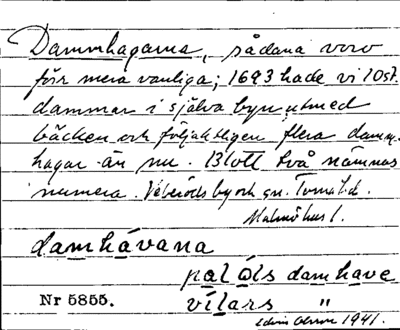 Dammhagarna, sådana voro
förr mera vanliga; 1693 hade vi 10 st.
dammar i själva byn utmed
bäcken och följaktligen flera damm-
hagar än nu. Blott två nämnas
numera. Veberöds by och sn. Torna hd.
Malmöhus l.
damhávana
palóls damhave
Nr 5855. vílars "
1941.